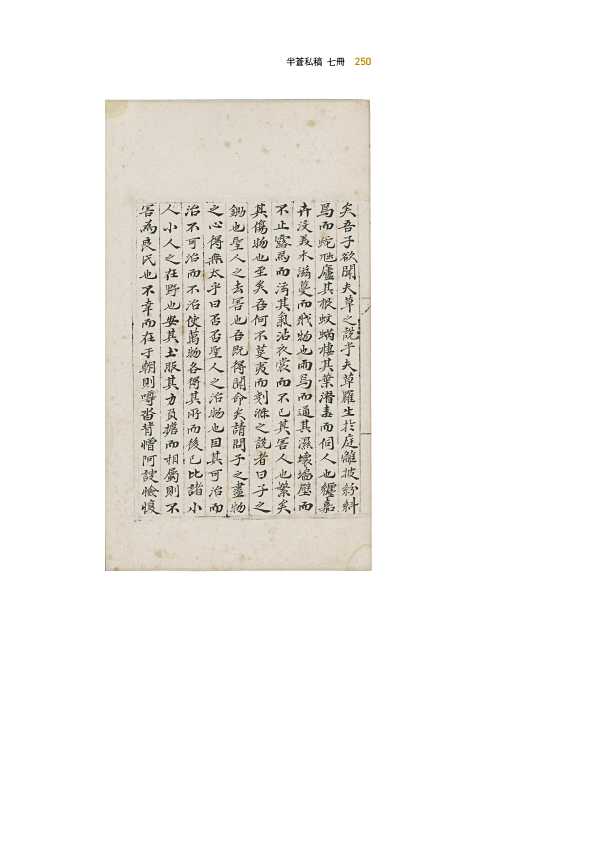 半蒼私稿 七冊 250
矣吾子欲聞夫草之說乎夫草羅生於庭離披紛糾
焉而蛇虺廬其根蚊蝱棲其葉潛毒而伺人也纏嘉
卉沒美木滋蔓而戕物也雨焉而通其濕壞墻壁而
不止露焉而淸其氣沾衣裳而不已其害人也繁矣
其傷物也至矣吾何不芟夷而剗滌之說者曰子之
鋤也聖人之去害也吾旣得聞命矣請問子之盡物
之心得無太乎曰否否聖人之治物也因其可治而
治不可治而不治使萬物各得其所而後已比諸小
人小人之在野也安其土服其力負擔而相屬則不
害爲良民也不幸而在于朝則噂沓背憎阿諛憸